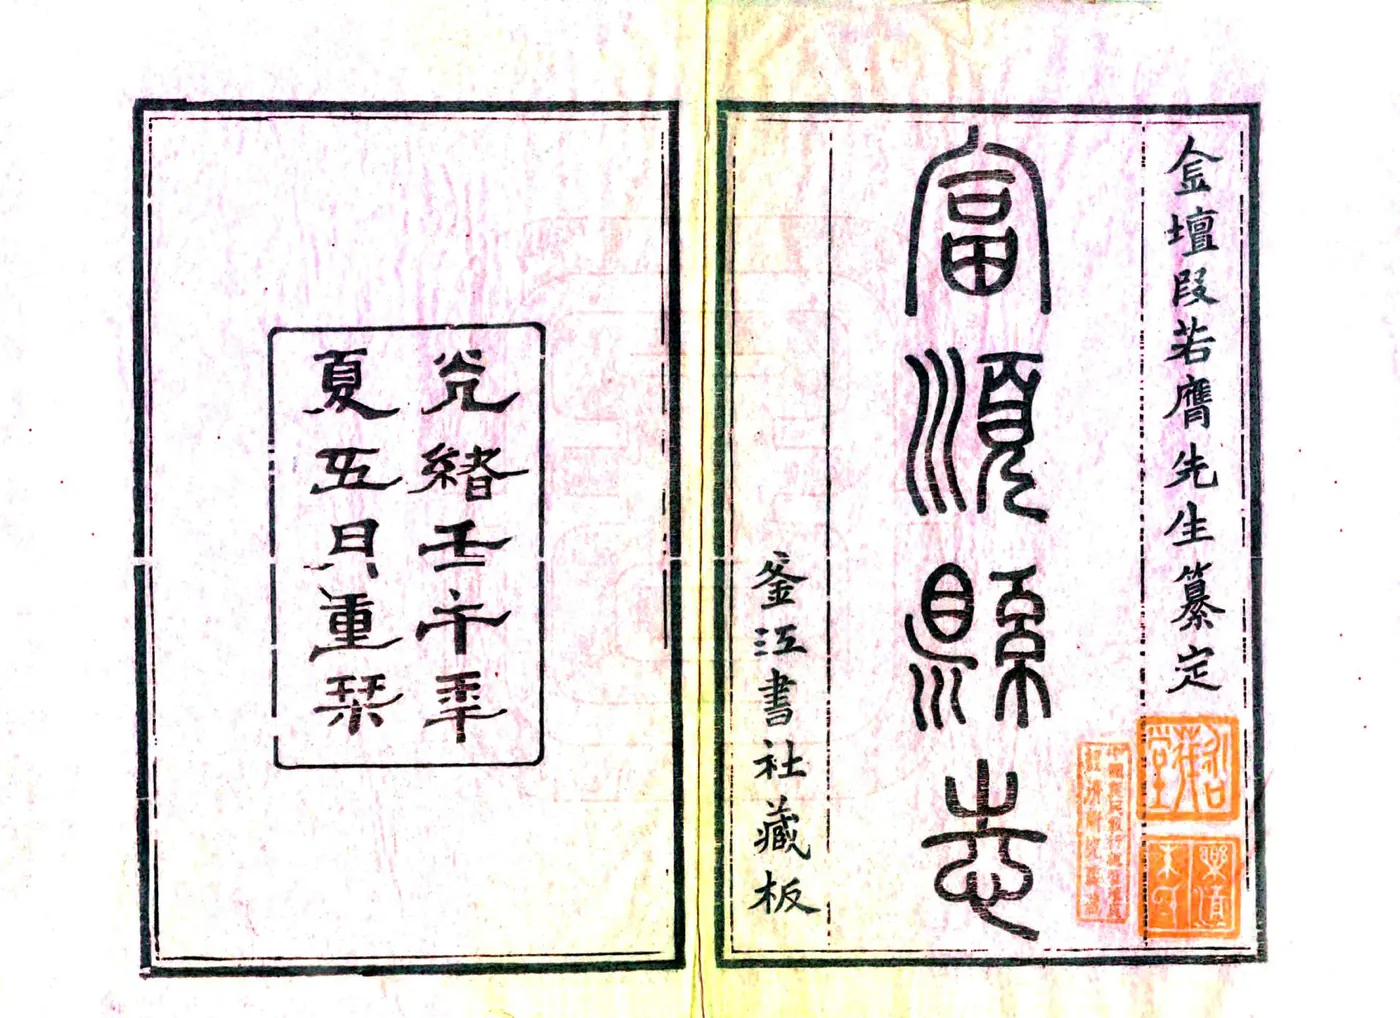 金壇段若膺先生纂定
富順縣志
釜江書社藏板
光緒壬午年
夏五月重栞